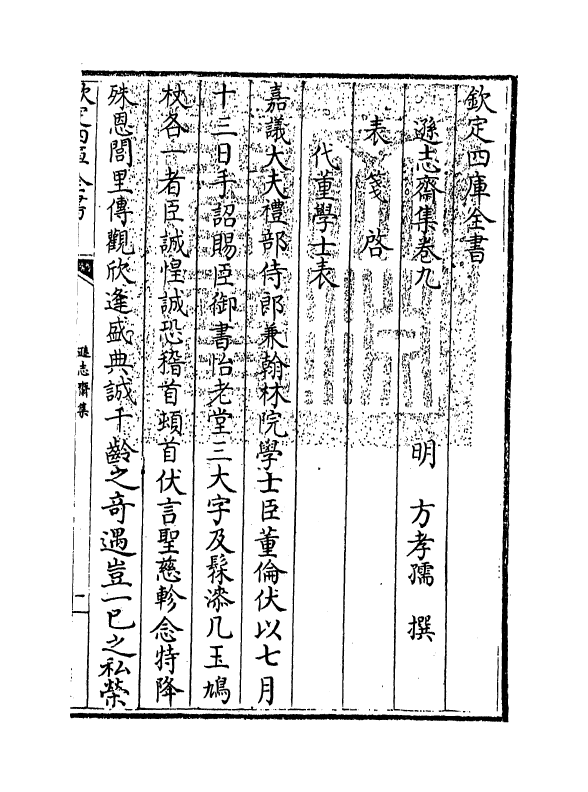 欽定四庫全書
遜志齋集卷九
明 方孝孺 撰
表箋啓
代董學士表
嘉議大夫禮部侍郎兼翰林院學士臣董倫伏以七月
十三日手詔賜臣御書怡老堂三大字及髹漆几玉鳩
杖各一者臣誠惶誠恐稽首頓首伏言聖慈軫念特降
殊恩閭里傳觀欣逢盛典誠千齡之奇遇豈一已之私榮
欽定四庫全書
遜志齋集
一